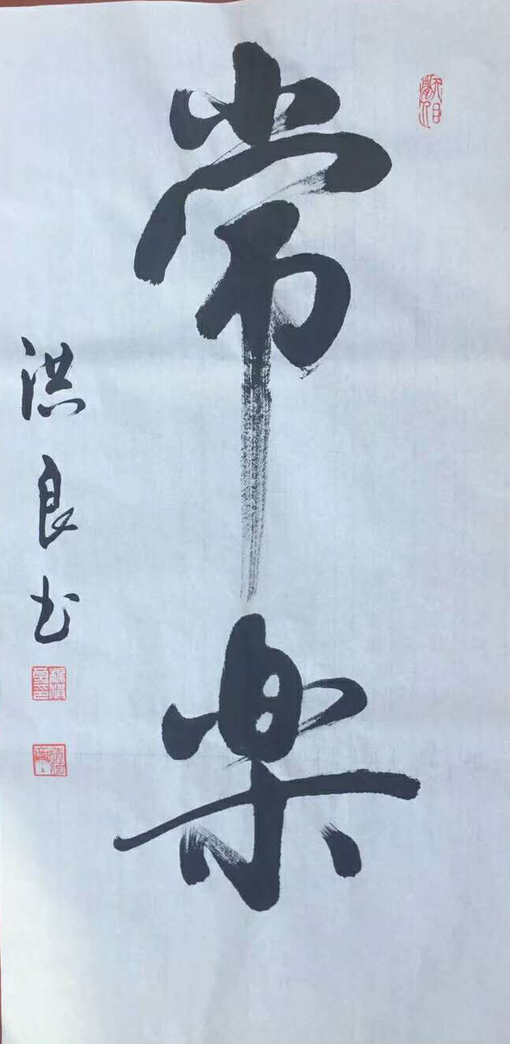 常楽
洪良书